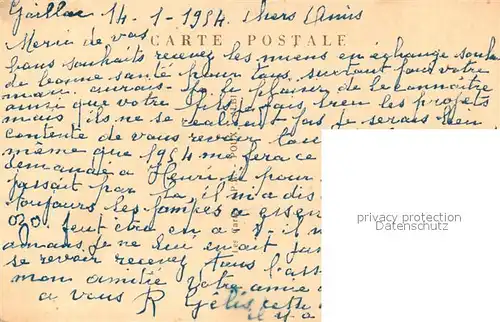 Gaillac 14-1-1954. Chers Amis
Merci de vos
CARTE POSTALE
bons souhaits recevez les miens en échange souhait
de bonne santé pour tous, surtout pour votre
mari. aurais-je le plaisir de le connaitre
ainsi que votre
mais ils ne se réalisent pas je serais bien
contente de vous revoir tou
même que 1954 me fera ce
demandé à Henri si pour
passait par la il m'a dis
toujours les pompes a essen
peut etre en a
je ne
se revoir recevez tous l'ass
mon amitié votre amie
a vous R Gélis cette
il y a
privacy protection
Datenschutz